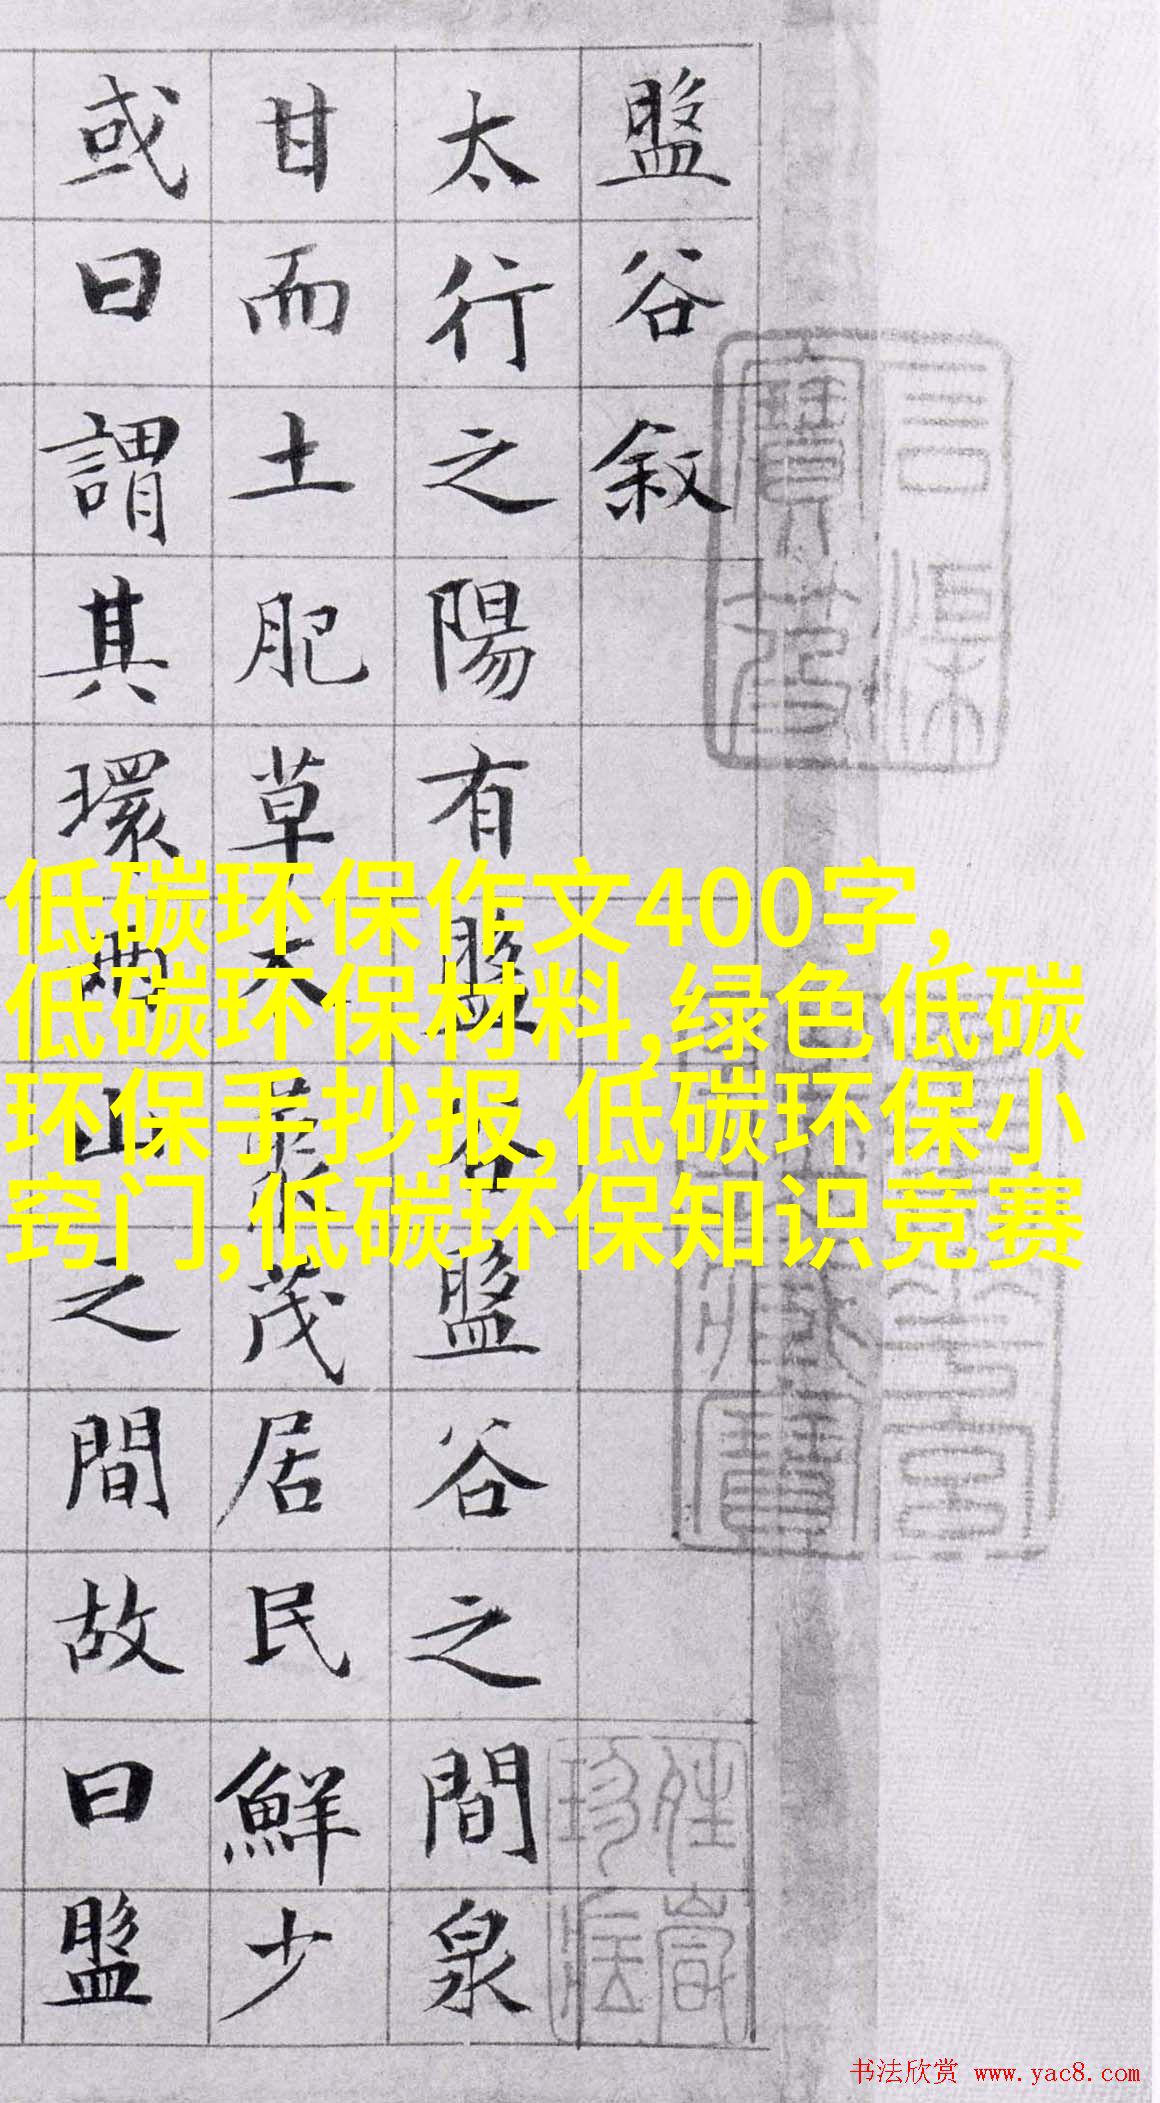 盤谷敘
太行之陽有盤谷盤谷之間泉
甘而土肥草木藂茂居民鮮少
或曰謂其環兩山之間故曰盤
低碳环保作文400字,
低碳环保材料,绿色低碳
环保手抄报,低碳环保小
窍门,低碳环保知识竞赛
书法欣赏 www.yac8.com